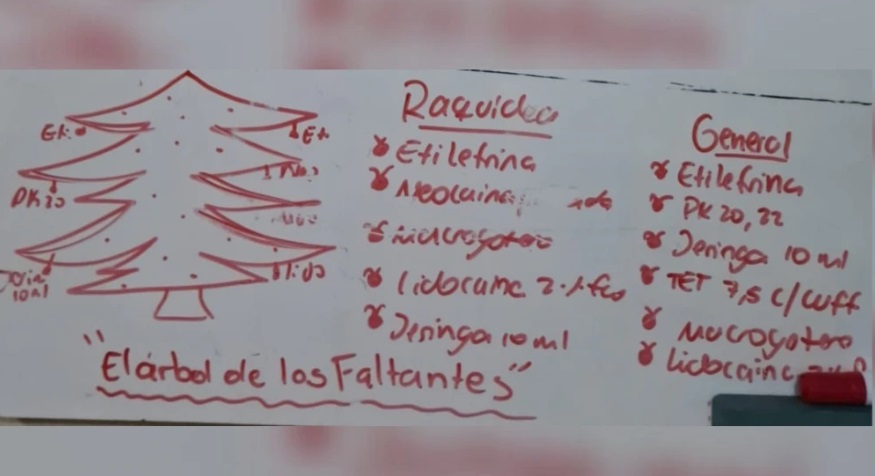 Eti.
Et
PK20
10 ml
Raquidea
Etilefrina
Neocaina
Macrogotero
Lidocaina 2% fco
Jeringa 10 ml
General
Etilefrina
PK 20, 22
Jeringa 10 ml
TET 7,5 c/cuff
Macrogotero
Lidocaina
"El árbol de los Faltantes"